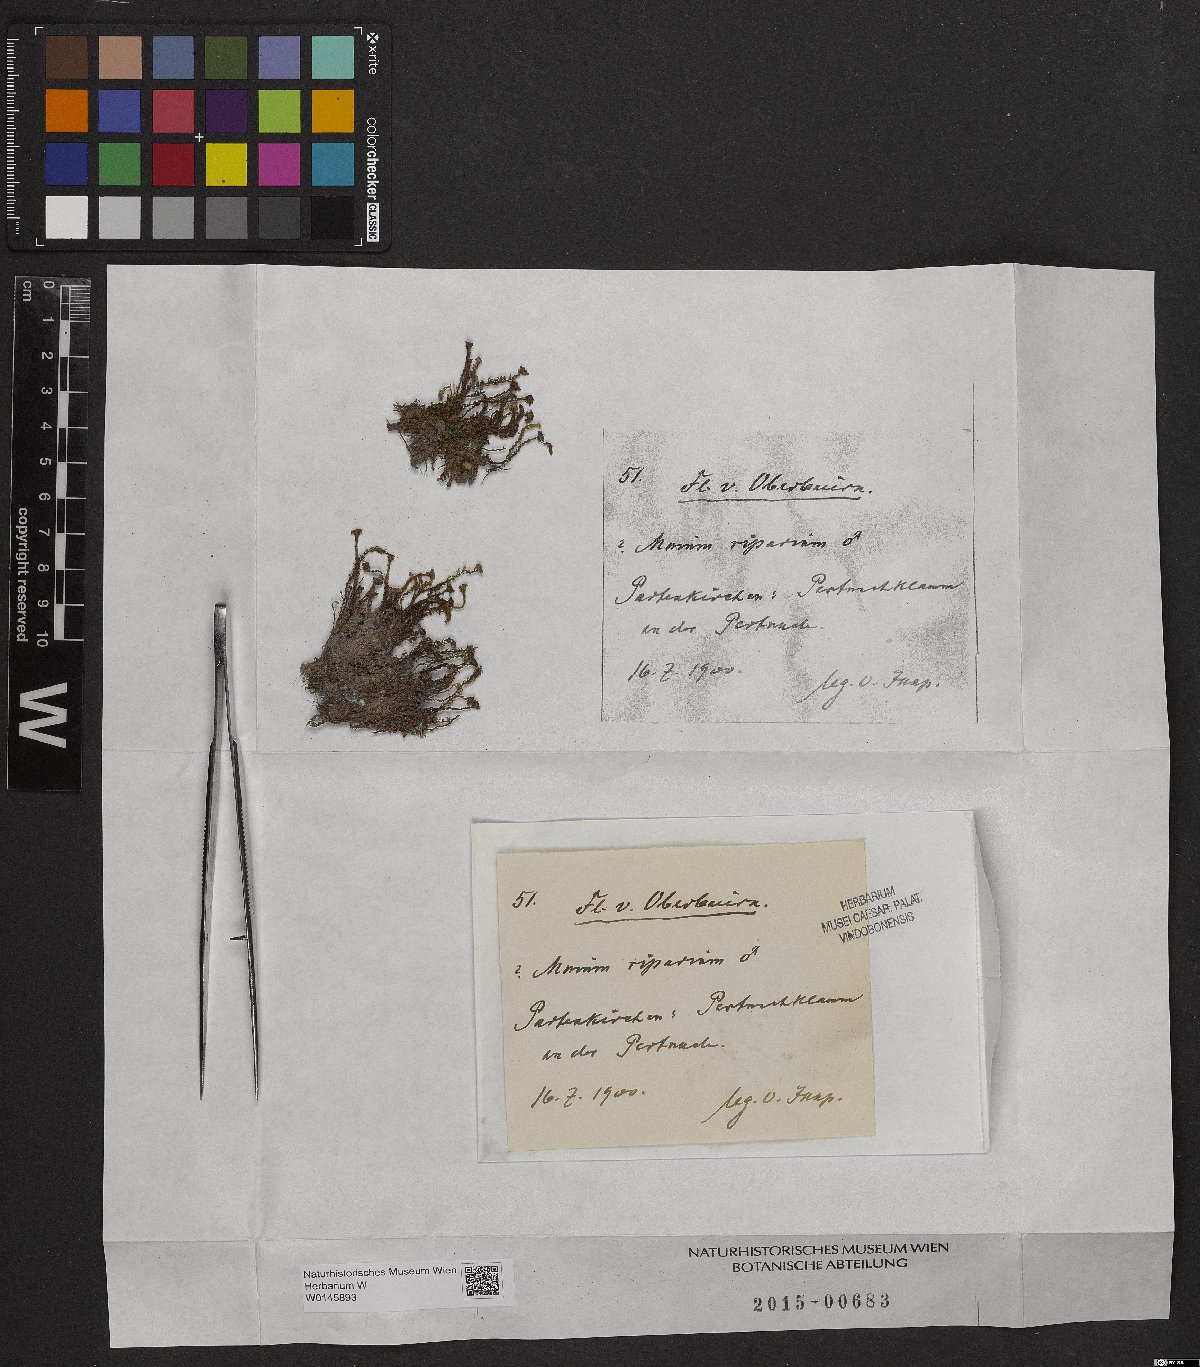 x-rite
colorchecker CLASSIC
cm
0 1 2 3 4 5 6 7 8 9 10
copyright reserved
W
51. Fl. v. Oberbaiern.
? Mnium riparium ♂
Partenkirchen: Partnachklamm
an der Partnach.
16. 7. 1900. leg. O. Jaap.
51. Fl. v. Oberbaiern.
? Mnium riparium ♂
Partenkirchen: Partnachklamm
an der Partnach.
16. 7. 1900. leg. O. Jaap.
HERBARIUM
MUSEI CAESAR. PALAT.
VINDOBONENSIS
NATURHISTORISCHES MUSEUM WIEN
BOTANISCHE ABTEILUNG
2015-00683
Naturhistorisches Museum Wien
Herbarium W
W0145893